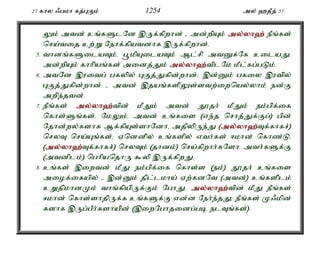 27 காலஃபமா கத்புகும் 1254 அல் ஹதீத் 57
லும் அவன் உங்களுடனே இருக்கிறான் - அன்றியும் அல்லாஹ் நீங்கள்
செய்வதை உற்று நோக்கியவனாக இருக்கிறான்.
5. வானங்களுடையவும், பூமியுடையவும் ஆட்சி அவனுக்கே உடையது.
அன்றியும் காரியங்கள் அனைத்தும் அல்லாஹ்விடமே மீட்கப்படும்.
6. அவனே இரவைப் பகலில் புகுத்துகின்றான்; இன்னும் பகலை இரவில்
புகுத்துகின்றான் - அவன் இதயங்களிலுள்ளவற்றையெல்லாம் நன்கு
அறிந்தவன்.
7. நீங்கள் அல்லாஹ்வின் மீதும் அவன் தூதர் மீதும் நம்பிக்கை
கொள்ளுங்கள். மேலும், அவன் உங்களை (எந்த சொத்துக்குப்) பின்
தோன்றல்களாக ஆக்கியுள்ளானோ, அதிலிருந்து (அல்லாஹ்வுக்காகச்)
செலவு செய்யுங்கள்; ஏனெனில் உங்களில் எவர்கள் ஈமான் கொண்டு,
(அல்லாஹ்வுக்காகச்) செலவும் (தானம்) செய்கிறார்களோ, அவர்களுக்கு
(அவனிடம்) பெரியதொரு கூலி இருக்கிறது.
8. உங்கள் இறைவன் மீது நம்பிக்கை கொள்ள (நம்) தூதர் உங்களை
அழைக்கையில் - இன்னும் திட்டமாய் ஏற்கனவே (அவன்) உங்களிடம்
உறுதிமானமும் வாங்கியிருக்கும் போது, அல்லாஹ்வின் மீது நீங்கள்
ஈமான் கொள்ளாதிருக்க உங்களுக்கு என்ன நேர்ந்தது; நீங்கள் முஃமின்
களாக இருப்பீர்களாயின் (இறைபோதனைப்படி நடவுங்கள்).